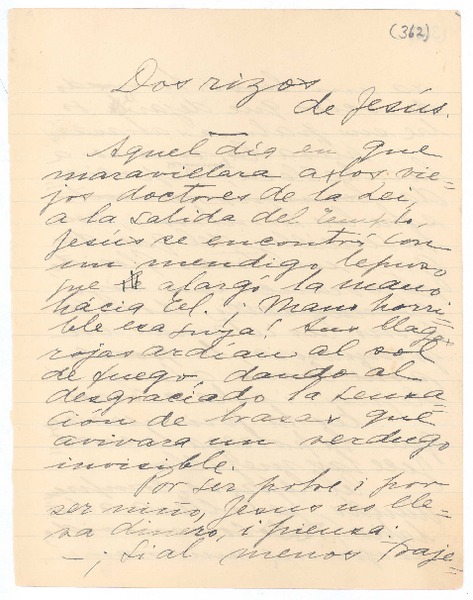 (362)
Dos rizos
de Jesús.
Aquel día en que
maravillara a los vie-
jos doctores de la Lei,
a la salida del Templo,
Jesús se encontró con
un mendigo leproso,
que alargó la mano
hácia Él. ¡Mano horri-
ble esa suya! Sus llagas
rojas ardían al sol
de fuego, dando al
desgraciado la sensa-
ción de brasas que
avivara un verdugo
invisible.
Por ser pobre i por
ser niño, Jesus no lle-
va dinero, i piensa:
—¡Si al menos traje-